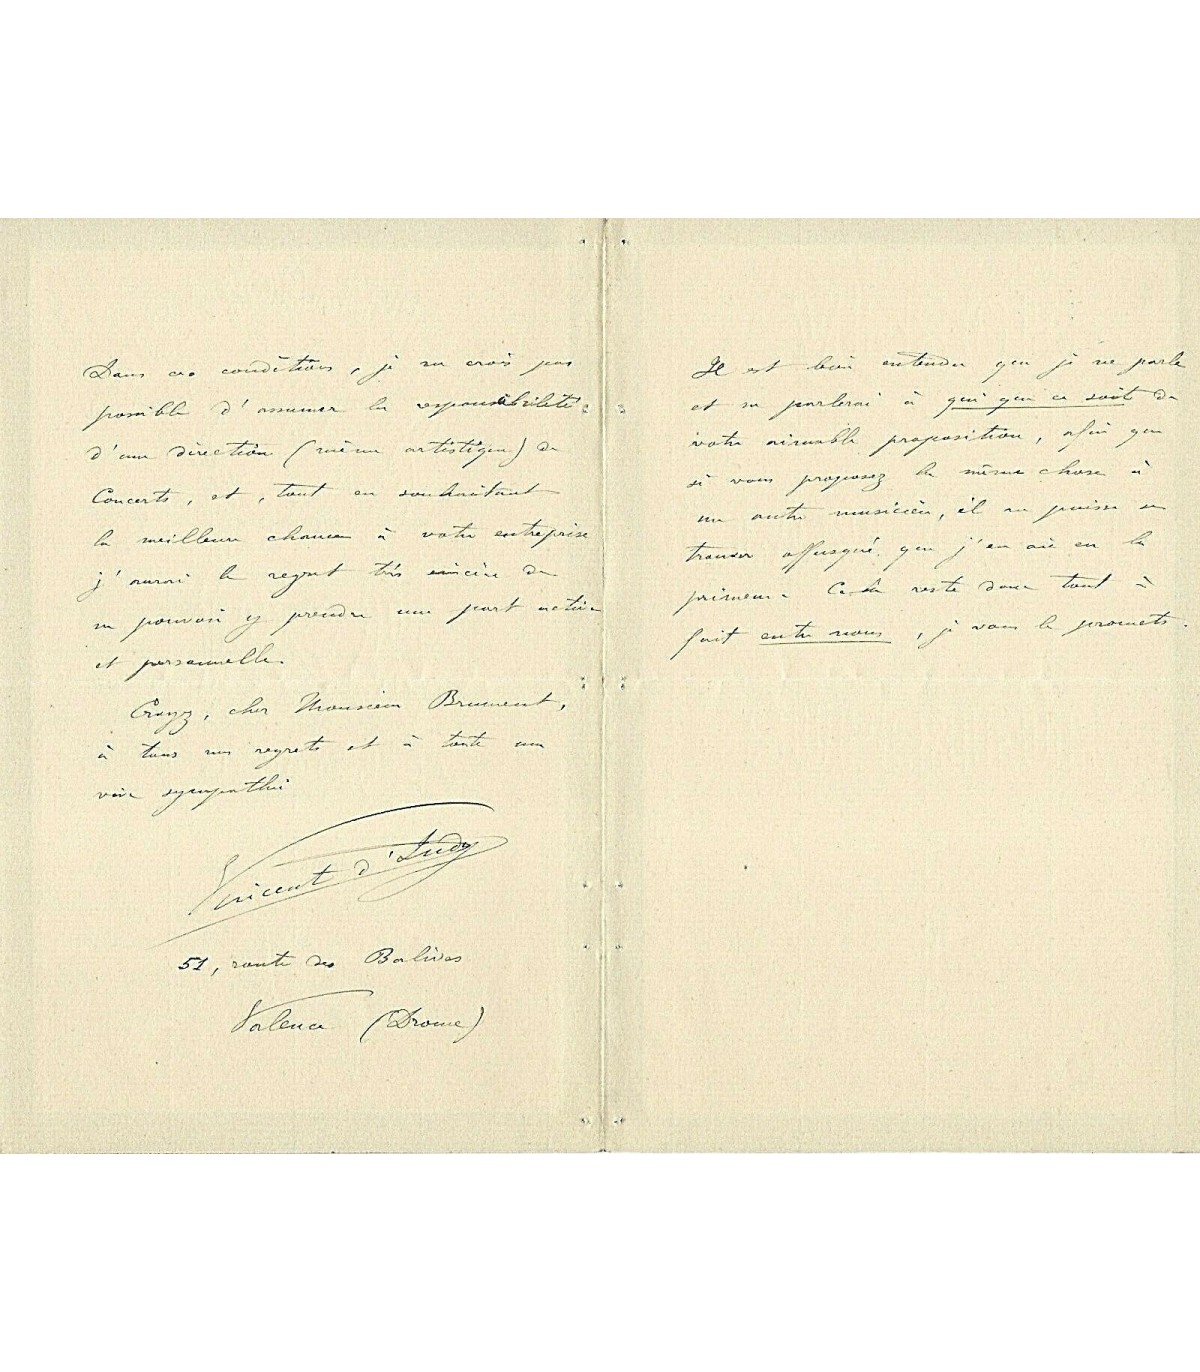 Dans ces conditions, je ne crois pas
possible d'assumer la responsabilité
d'une direction (même artistique) de
Concerts, et, tout en souhaitant
la meilleure chance à votre entreprise
j'aurai le regret très sincère de
ne pouvoir y prendre une part active
et personnelle.
Croyez, cher Monsieur Brument,
à tous mes regrets et à toute ma
vive sympathie
Vincent d'Indy
51, route des
Valence (Drome)
Il est bien entendu que je ne parle
et ne parlerai à qui que ce soit de
votre aimable proposition, afin que
si vous proposez la même chose à
un autre musicien, il ne puisse se
trouver offusqué que j'en aie eu la
primeur. Cela reste donc tout à
fait entre nous, je vous le promets.